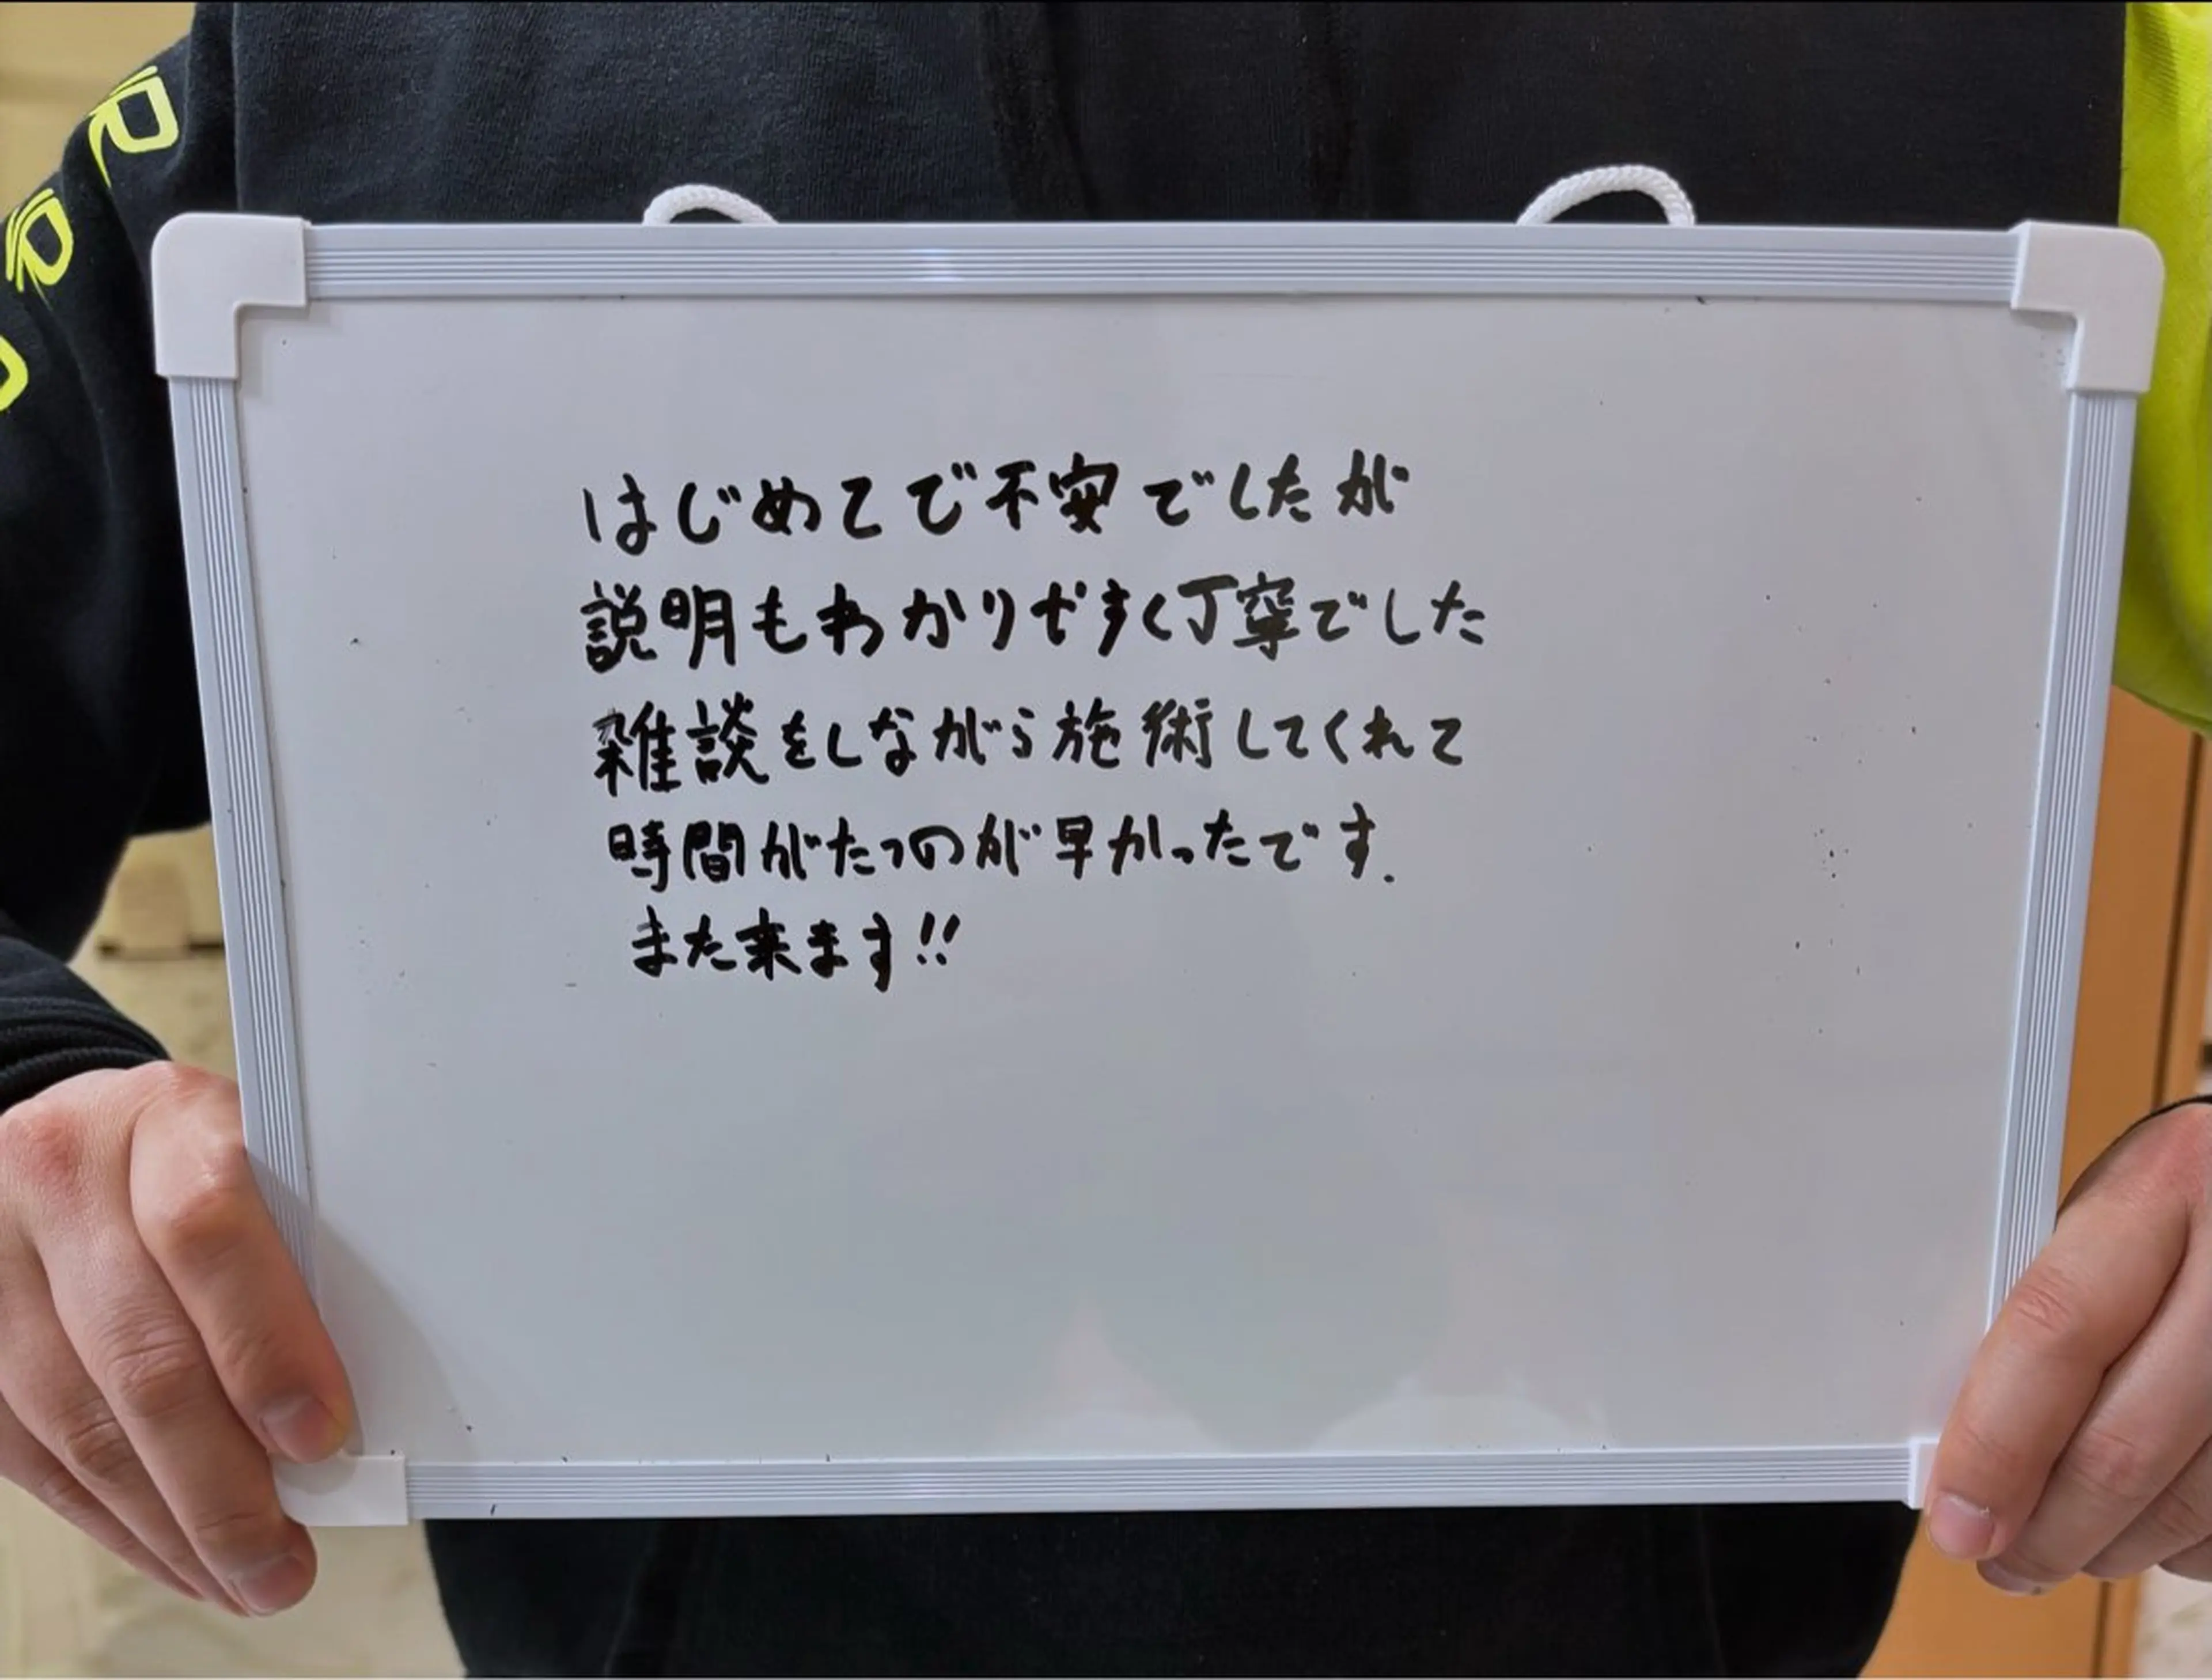 はじめてで不安でしたが
説明もわかりやすく丁寧でした
雑談をしながら施術してくれて
時間がたつのが早かったです.
また来ます!!